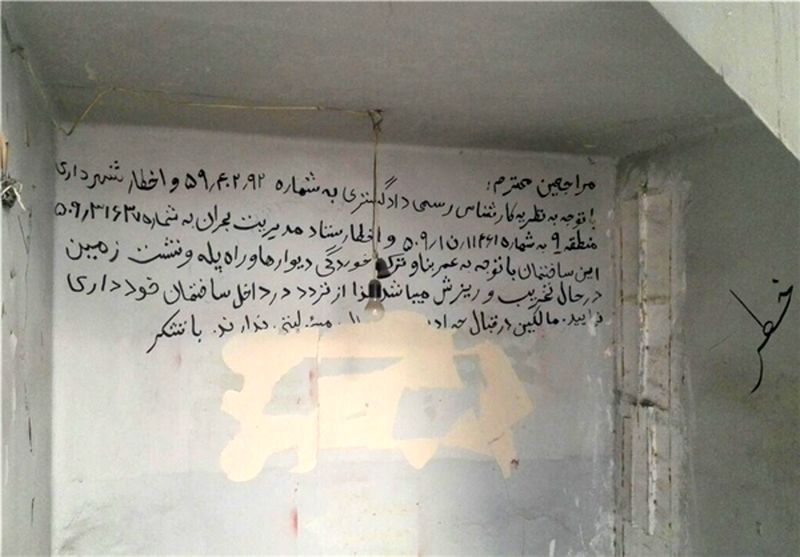 مراجعین محترم:
با توجه به نظریه کارشناس رسمی دادگستری به شماره ۵۹٫۴۰۲٫۹۲ و اخطار شهرداری
منطقه ۹ به شماره و اخطار ستاد مدیریت بحران به شماره
این ساختمان با توجه به عمر بنا و ترک خوردگی دیوارها و راه پله و نشست زمین
در حال تخریب و ریزش میباشد لذا از تردد در داخل ساختمان خودداری
فرمایید. مالکین در قبال مسئولیتی ندارند. با تشکر
خطر